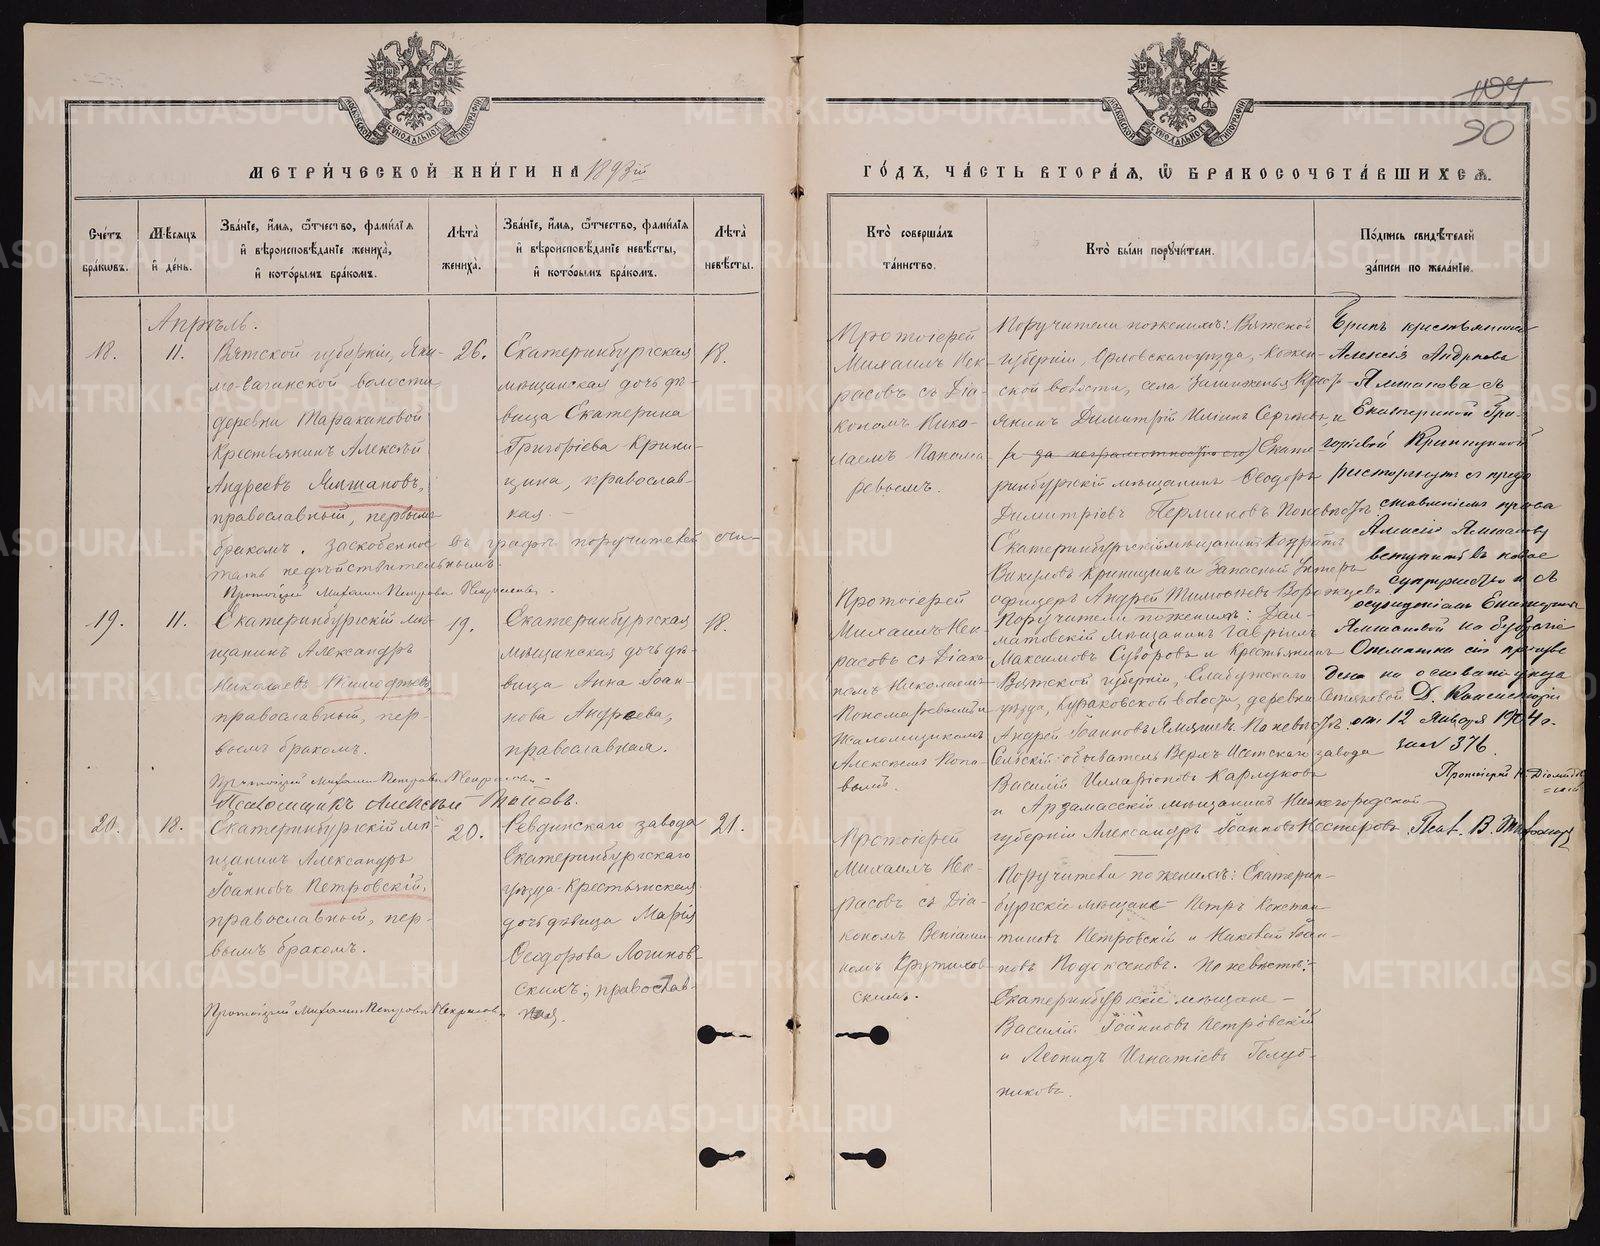 104
90
МЕТРИ́ЧЕСКОЙ КНИ́ГИ НА 1893й
ГО́ДЪ, ЧА́СТЬ ВТОРА́Я, Ѽ БРАКОСОЧЕТА́ВШИХСЯ.
Сче́тъ бра́кωвъ.
Мѣсяцъ и҆ де́нь.
Зва́нїе, и҆́мя, ѻ҆́тчество, фами́лїя и҆ вѣроисповѣ́данїе жениха̀, и҆ кото́рымъ бра́комъ.
Лѣта̀ жениха̀.
Зва́нїе, и҆́мя, ѻ҆́тчество, фами́лїя и҆ вѣроисповѣ́данїе невѣ́сты, и҆ кото́рымъ бра́комъ.
Лѣта̀ невѣ́сты.
Кто̀ соверша́лъ та́инство.
Кто̀ бы́ли пору҆чи́тели.
По́дпись свидѣ́телей за́писи по жела́нїю.
Апрѣль.
18.
11.
Вятской губерніи, Яки-
мо-Вагинской волости,
деревни Таракановой
Крестьянинъ Алексѣй
Андреевъ Ямшановъ,
православный, первымъ
бракомъ. Заскобенное въ графѣ поручителей счи-
тать недѣйствительнымъ.
Протоіерей Михаилъ Петровъ Некрасовъ.
26.
Екатеринбургская
мѣщанская дочь дѣ-
вица Екатерина
Григоріева Крини-
цина, православ-
ная. –
18.
Протоіерей
Михаилъ Нек-
расовъ съ Діа-
кономъ Нико-
лаемъ Понома
ревымъ.
Поручители по женихѣ: Вятской
губерніи, Орловскаго уѣзда,
ской волости, села Крест-
янинъ Димитрій Иліинъ Сергѣевъ, и
(а за неграмотностію его) Екате
ринбургскій мѣщанинъ Ѳеодоръ
Димитріевъ Перминовъ По невѣстѣ
Екатеринбургскій мѣщанинъ Кондратъ
Викуловъ Криницинъ и Запасный Унтеръ
офицеръ Андрей Тимоѳеевъ Ворожцовъ
Бракъ крестьянина
Алексія Андреева
Ямшанова съ
Екатериной Гри-
горіевой Криницыной
расторгнутъ съ предо
ставленіемъ права
Алексію Ямшанову
вступить въ новое
супружество и съ
осужденіемъ Екатерины
Ямшановой на безбрачіе
Отмѣтка сія произве
дена на основаніи указа
Д. Консисторіи
от 12 Января 1904 г.
за № 376.
Протоіерей
Псал. В.
19.
11.
Екатеринбургскій мѣ-
щанинъ Александръ
Николаевъ
православный, пер-
вымъ бракомъ.
Протоіерей Михаилъ Петровъ Некрасовъ.
Псаломщикъ Алексѣй Поповъ.
19.
Екатеринбургская
мѣщанская дочь дѣ-
вица Анна Іоан-
нова Андреева,
православная.
18.
Протоіерей
Михаилъ Нек-
расовъ съ Діако
номъ Николаемъ
Пономаревымъ и
Псаломщикомъ
Алексѣемъ Попо
вымъ.
Поручители по женихѣ: Дал-
матовскій мѣщанинъ Гавріилъ
Максимовъ Суворовъ и Крестьянинъ
Вятской губерніи, Елабужскаго
уѣзда, Кураковской волости, деревни Сетяковой
Андрей Іоанновъ По невѣстѣ:
Сельскій обыватель Верхъ Исетскаго завода
Василій Илларіоновъ Карлуковъ
и Арзамасскій мѣщанинъ Нижегородской
губерніи Александръ Іоанновъ Нестеровъ
20.
18.
Екатеринбургскій мѣ-
щанинъ Александръ
Іоанновъ Петровскій,
православный, пер-
вымъ бракомъ.
Протоіерей Михаилъ Петровъ Некрасовъ
20.
Ревдинскаго завода
Екатеринбургскаго
уѣзда Крестьянская
дочь дѣвица Марія
Ѳеодорова Логинов-
скихъ, православ-
ная.
21.
Протоіерей
Михаилъ Нек-
расовъ съ Діа-
кономъ Веніами
номъ Крутихов
скимъ.
Поручители по женихѣ: Екатерин-
бургскіе мѣщане Петръ Констан-
тиновъ Петровскій и Николай Іоан-
новъ Подоксеновъ. По невѣстѣ:
Екатеринбургскіе мѣщане –
Василій Іоанновъ Петровскій
и Леонидъ Игнатіевъ Голуб-
чиковъ.
METRIKI.GASO-URAL.RU